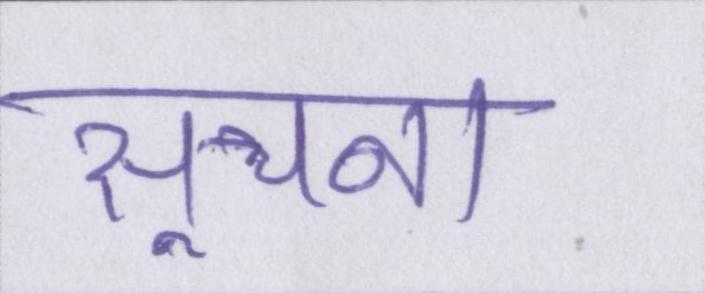 सूचना